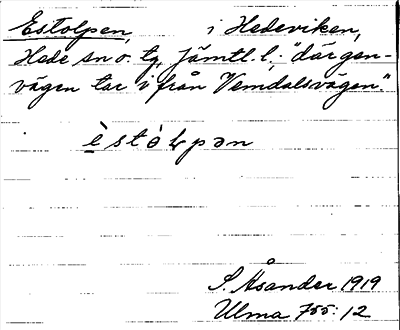 Estolpen, i Hedeviken,
Hede sn o. tg, Jämtl. l.; "där gen-
vägen tar i från Vemdalsvägen."
è s t ò ɫ p ə n
S. Åsander 1919
Ulma 755:12